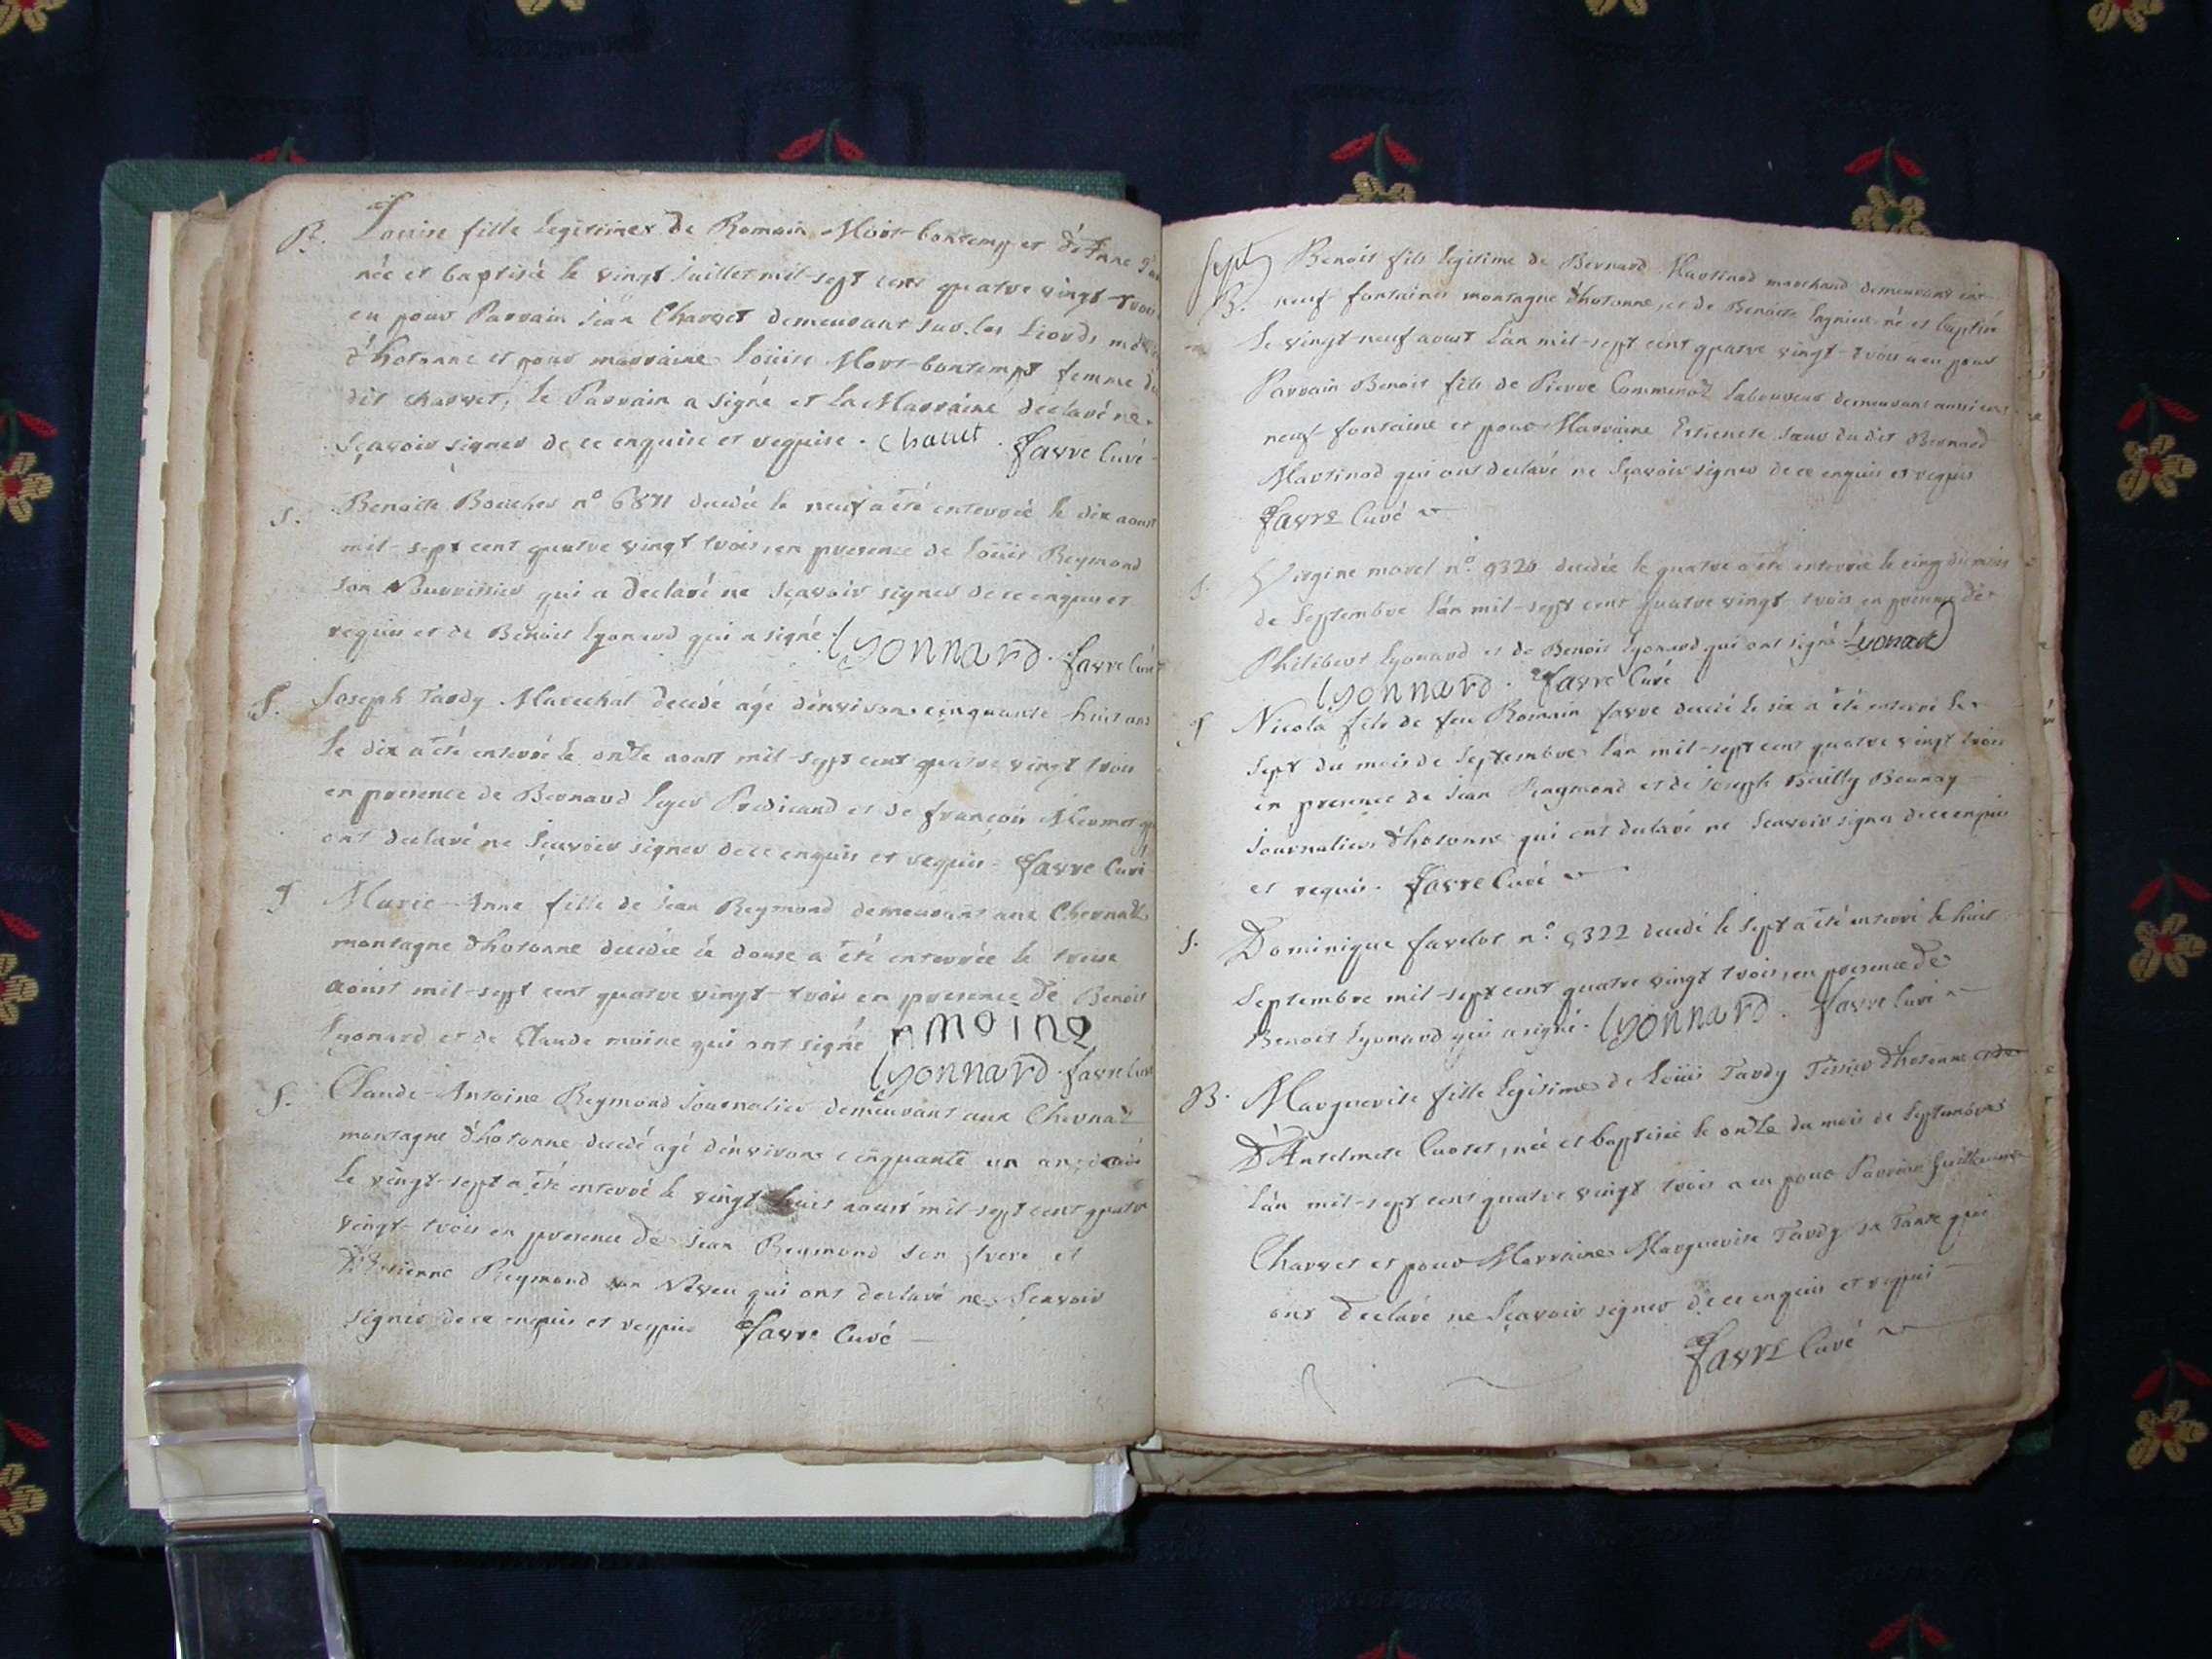 B. Louise fille legitime de Romain Mort-bontemp et d'Anne
née et baptisée le vingt juillet mil-sept cent quatre vingt-trois
eu pour Parrain jean Charvet demeurant sur les Liords
d'hotonne et pour marraine Loüise Mort-bontempt femme du
dit Charvet, le Parrain a signé et la Marraine déclaré ne
sçavoir signer de ce enquise et requise. Charvet. favre Curé
S. Benoite Boucher n° 6871 decedée le neuf a été enterrée le dix aoust
mil-sept cent quatre vingt trois, en presence de Loüis Reymond
son Nourrissier qui a declaré ne sçavoir signer de ce enquis et
requis et de Benoit Lyonard qui a signé. Lyonnard. favre Curé
S. Joseph Tardy Marechal decedé agé d'environ cinquante-huit ans
le dix a été enterré le onze aoust mil-sept cent quatre vingt trois
en presence de Bernard Leger Predicand et de françois Mermet qui
ont declaré ne sçavoir signer de ce enquis et requis. favre Curé
S Marie-Anne fille de jean Reymond demeurant aux Chernaz
montagne d'hotonne decedée le douse a été enterrée le treise
aoust mil-sept cent quatre vingt-trois en presence de Benoit
Lyonard et de Claude moine qui ont signé moine
Lyonnard. favre Curé
S. Claude-Antoine Reymond journalier demeurant aux Chernaz
montagne d'hotonne decedé agé d'environs cinquante un an
le vingt-sept a été enterré le vingt huit aoust mil-sept cent quatre
vingt-trois en presence de jean Reymond son frere et
d'Etienne Reymond son Neveu qui ont declaré ne sçavoir
signer de ce enquis et requis favre Curé
sept
B. Benoit fils legitime de Bernard Martinod marchand demeurant en
neuf-fontaines montagne d'hotonne, et de Benoite Lagnieu né et baptisé
le vingt-neuf aoust l'an mil-sept cent quatre vingt-trois a eu pour
Parrain Benoit fils de Pierre Commenoz laboureur demeurant aussi en
neuf-fontaine et pour Marraine Estiennete sœur du dit Bernard
Martinod qui ont declaré ne sçavoir signer de ce enquis et requis
favre Curé
S. Virgine morel n° 9320 decedée le quatre a été enterrée le cinq du mois
de Septembre l'an mil-sept cent quatre vingt-trois en presence de
Philibert Lyonard et de Benoit Lyonard qui ont signé Lyonard
Lyonnard. favre Curé
S Nicola fils de feu Romain favre decedé le six a été enterré le
sept du mois de Septembre l'an mil-sept cent quatre vingt trois
en presence de jean Reymond et de joseph Bailly
journaliers d'hotonne qui ont declaré ne sçavoir signer de ce enquis
et requis. favre Curé
S. Dominique favelot n° 9322 decedé le sept a été enterré le huit
Septembre mil-sept cent quatre vingt trois, en presence de
Benoit Lyonard qui a signé. Lyonnard. favre Curé
B. Marguerite fille legitime de Loüis Tardy Tissier d'hotonne
D'Antelmete Cuotet, née et baptisée le onze du mois de Septembre
l'an mil-sept cent quatre vingt trois a eu pour Parrain Guillaume
Charvet et pour Marraine Marguerite Tardy sa Tante qui
ont declaré ne sçavoir signer de ce enquis et requis
favre Curé